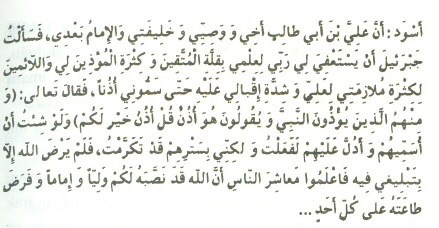 أسْوَد : أنَّ عَليَّ بْنَ أبي طالِبٍ أخي وَ وَصيّي وَ خَليفَتي وَالإمامُ بَعْدي، فَسَألْتُ
جَبرَئيلَ أنْ يَسْتَعْفِيَ لي رَبّي لِعِلْمي بِقِلَّةِ الْمُتَّقينَ وَ كَثْرَةِ الْمُؤْذينَ لي وَاللّائِمينَ
لِكَثْرَةِ مُلازَمَتي لِعَليٍّ وَ شِدَّةِ إقْبالي عَلَيْهِ حَتّى سَمُّوني أُذُناً، فَقالَ تَعالى : (وَ
مِنْهُمُ الَّذينَ يُوْذُونَ النَّبيَّ وَ يَقُولُونَ هُوَ أُذُنٌ قُلْ أُذُنُ خَيْرٍ لَكُمْ) وَلَوْ شِئْتُ أنْ
أُسَمّيهِمْ وَ أدُلَّ عَلَيْهِمْ لَفَعَلْتُ وَ لكِنّي بِسَتْرِهِمْ قَدْ تَكَرَّمْتُ، فَلَمْ يَرْضَ اللّه إلاّ
بِتَبْليغي فيهِ فَاعْلَمُوا مَعاشِرَ النّاسِ أنَّ اللّه قَدْ نَصَّبَهُ لَكُمْ وَليّاً وَ إماماً وَ فَرَضَ
طاعَتَهُ عَلى كُلِّ أحَدٍ ...